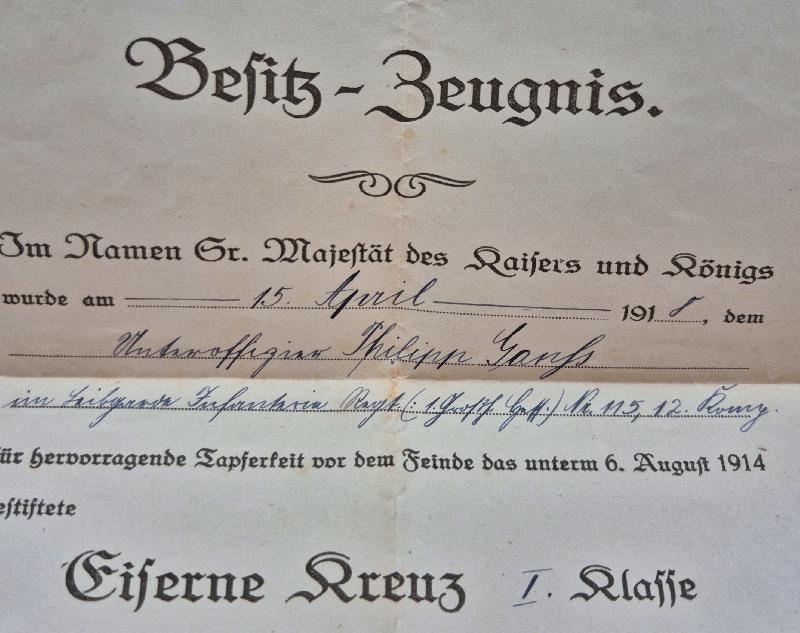 Besitz-Zeugnis.
Im Namen Sr. Majestät des Kaisers und Königs
wurde am 15. April 1918, dem
Unteroffizier Philipp
im Leibgarde Infanterie Regt. (: 1 Großh. Hess.) Nr. 115, 12. Komp.
für hervorragende Tapferkeit vor dem Feinde das unterm 6. August 1914
gestiftete
Eiserne Kreuz I. Klasse